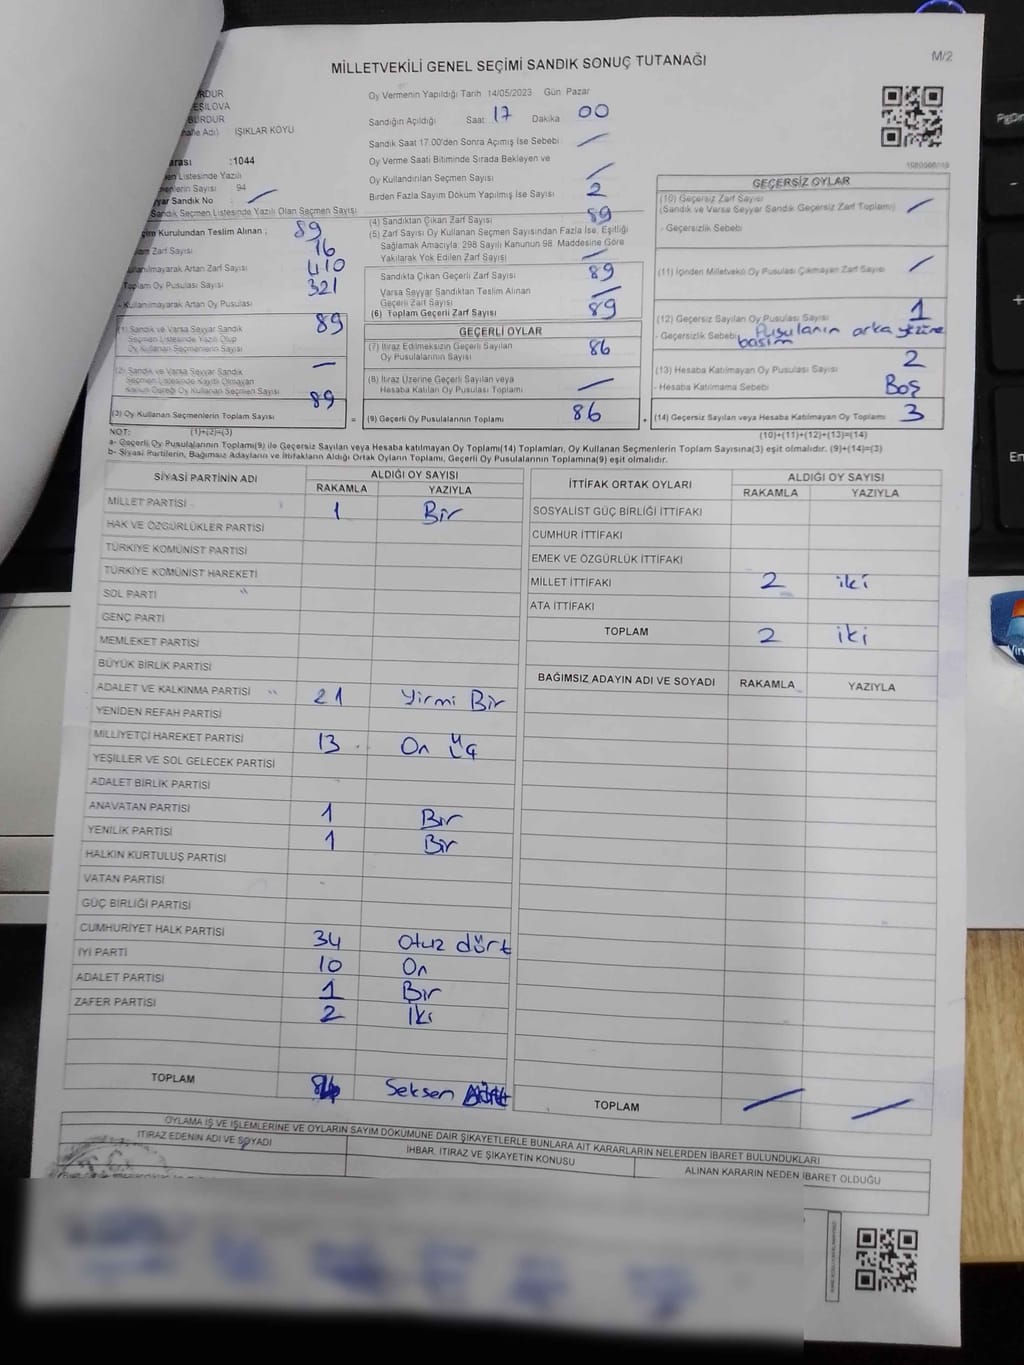 MİLLETVEKİLİ GENEL SEÇİMİ SANDIK SONUÇ TUTANAĞI
M/2
RDUR
EŞİLOVA
BURDUR
IŞIKLAR KOYU
Oy Vermenin Yapıldığı Tarih 14/05/2023 Gün Pazar
Sandığın Açıldığı Saat 17 Dakika 00
Sandık Saat 17.00'den Sonra Açımış İse Sebebi
Oy Verme Saati Bitiminde Sırada Bekleyen ve
Oy Kullandırılan Seçmen Sayısı
Birden Fazla Sayım Döküm Yapılmış İse Sayısı 2
arası :1044
en Listesinde Yazılı
menlerin Sayısı 94
yyar Sandık No
Sandık Seçmen Listesinde Yazılı Olan Seçmen Sayısı
çim Kurulundan Teslim Alınan ; 89
am Zarf Sayısı 16
ullanılmayarak Artan Zarf Sayısı 410
Toplam Oy Pusulası Sayısı 321
Kullanılmayarak Artan Oy Pusulası
(1) Sandık ve Varsa Seyyar Sandık
Seçmen Listesinde Yazılı Olup
Oy Kullanan Seçmenlerin Sayısı
89
(2) Sandık ve Varsa Seyyar Sandık
Seçmen Listesinde Kayıtlı Olmayan
Kanun Gereği Oy Kullanan Seçmen Sayısı
(3) Oy Kullanan Seçmenlerin Toplam Sayısı 89
(4) Sandıktan Çıkan Zarf Sayısı 89
(5) Zarf Sayısı Oy Kullanan Seçmen Sayısından Fazla İse, Eşitliği
Sağlamak Amacıyla, 298 Sayılı Kanunun 98. Maddesine Göre
Yakılarak Yok Edilen Zarf Sayısı
Sandıkta Çıkan Geçerli Zarf Sayısı 89
Varsa Seyyar Sandıktan Teslim Alınan
Geçerli Zarf Sayısı
(6) Toplam Geçerli Zarf Sayısı 89
GEÇERLİ OYLAR
(7) İtiraz Edilmeksizin Geçerli Sayılan
Oy Pusulalarının Sayısı
86
(8) İtiraz Üzerine Geçerli Sayılan veya
Hesaba Katılan Oy Pusulası Toplamı
= (9) Geçerli Oy Pusulalarının Toplamı 86 +
GEÇERSİZ OYLAR
(10) Geçersiz Zarf Sayısı
(Sandık ve Varsa Seyyar Sandık Geçersiz Zarf Toplamı)
- Geçersizlik Sebebi
(11) İçinden Milletvekili Oy Pusulası Çıkmayan Zarf Sayısı
(12) Geçersiz Sayılan Oy Pusulası Sayısı 1
- Geçersizlik Sebebi Pusulanın arka yüzüne
basım
(13) Hesaba Katılmayan Oy Pusulası Sayısı 2
- Hesaba Katılmama Sebebi Boş
(14) Geçersiz Sayılan veya Hesaba Katılmayan Oy Toplamı 3
NOT: (1)+(2)=(3)
(10)+(11)+(12)+(13)=(14)
a- Geçerli Oy Pusulalarının Toplamı(9) ile Geçersiz Sayılan veya Hesaba katılmayan Oy Toplamı(14) Toplamları, Oy Kullanan Seçmenlerin Toplam Sayısına(3) eşit olmalıdır. (9)+(14)=(3)
b- Siyasi Partilerin, Bağımsız Adayların ve İttifakların Aldığı Ortak Oyların Toplamı, Geçerli Oy Pusulalarının Toplamına(9) eşit olmalıdır.
SİYASİ PARTİNİN ADI ALDIĞI OY SAYISI
RAKAMLA YAZIYLA
MİLLET PARTİSİ 1 Bir
HAK VE ÖZGÜRLÜKLER PARTİSİ
TÜRKİYE KOMÜNİST PARTİSİ
TÜRKİYE KOMÜNİST HAREKETİ
SOL PARTİ
GENÇ PARTİ
MEMLEKET PARTİSİ
BÜYÜK BİRLİK PARTİSİ
ADALET VE KALKINMA PARTİSİ 21 Yirmi Bir
YENİDEN REFAH PARTİSİ
MİLLİYETÇİ HAREKET PARTİSİ 13 On Üç
YEŞİLLER VE SOL GELECEK PARTİSİ
ADALET BİRLİK PARTİSİ
ANAVATAN PARTİSİ 1 Bir
YENİLİK PARTİSİ 1 Bir
HALKIN KURTULUŞ PARTİSİ
VATAN PARTİSİ
GÜÇ BİRLİĞİ PARTİSİ
CUMHURİYET HALK PARTİSİ 34 Otuz dört
İYİ PARTİ 10 On
ADALET PARTİSİ 1 Bir
ZAFER PARTİSİ 2 İki
TOPLAM Seksen
İTTİFAK ORTAK OYLARI ALDIĞI OY SAYISI
RAKAMLA YAZIYLA
SOSYALİST GÜÇ BİRLİĞİ İTTİFAKI
CUMHUR İTTİFAKI
EMEK VE ÖZGÜRLÜK İTTİFAKI
MİLLET İTTİFAKI 2 iki
ATA İTTİFAKI
TOPLAM 2 iki
BAĞIMSIZ ADAYIN ADI VE SOYADI RAKAMLA YAZIYLA
TOPLAM
OYLAMA İŞ VE İŞLEMLERİNE VE OYLARIN SAYIM DÖKÜMÜNE DAİR ŞİKAYETLERLE BUNLARA AİT KARARLARIN NELERDEN İBARET BULUNDUKLARI
İTİRAZ EDENİN ADI VE SOYADI İHBAR, İTİRAZ VE ŞİKAYETİN KONUSU ALINAN KARARIN NEDEN İBARET OLDUĞU
T.C.
PgDn
En